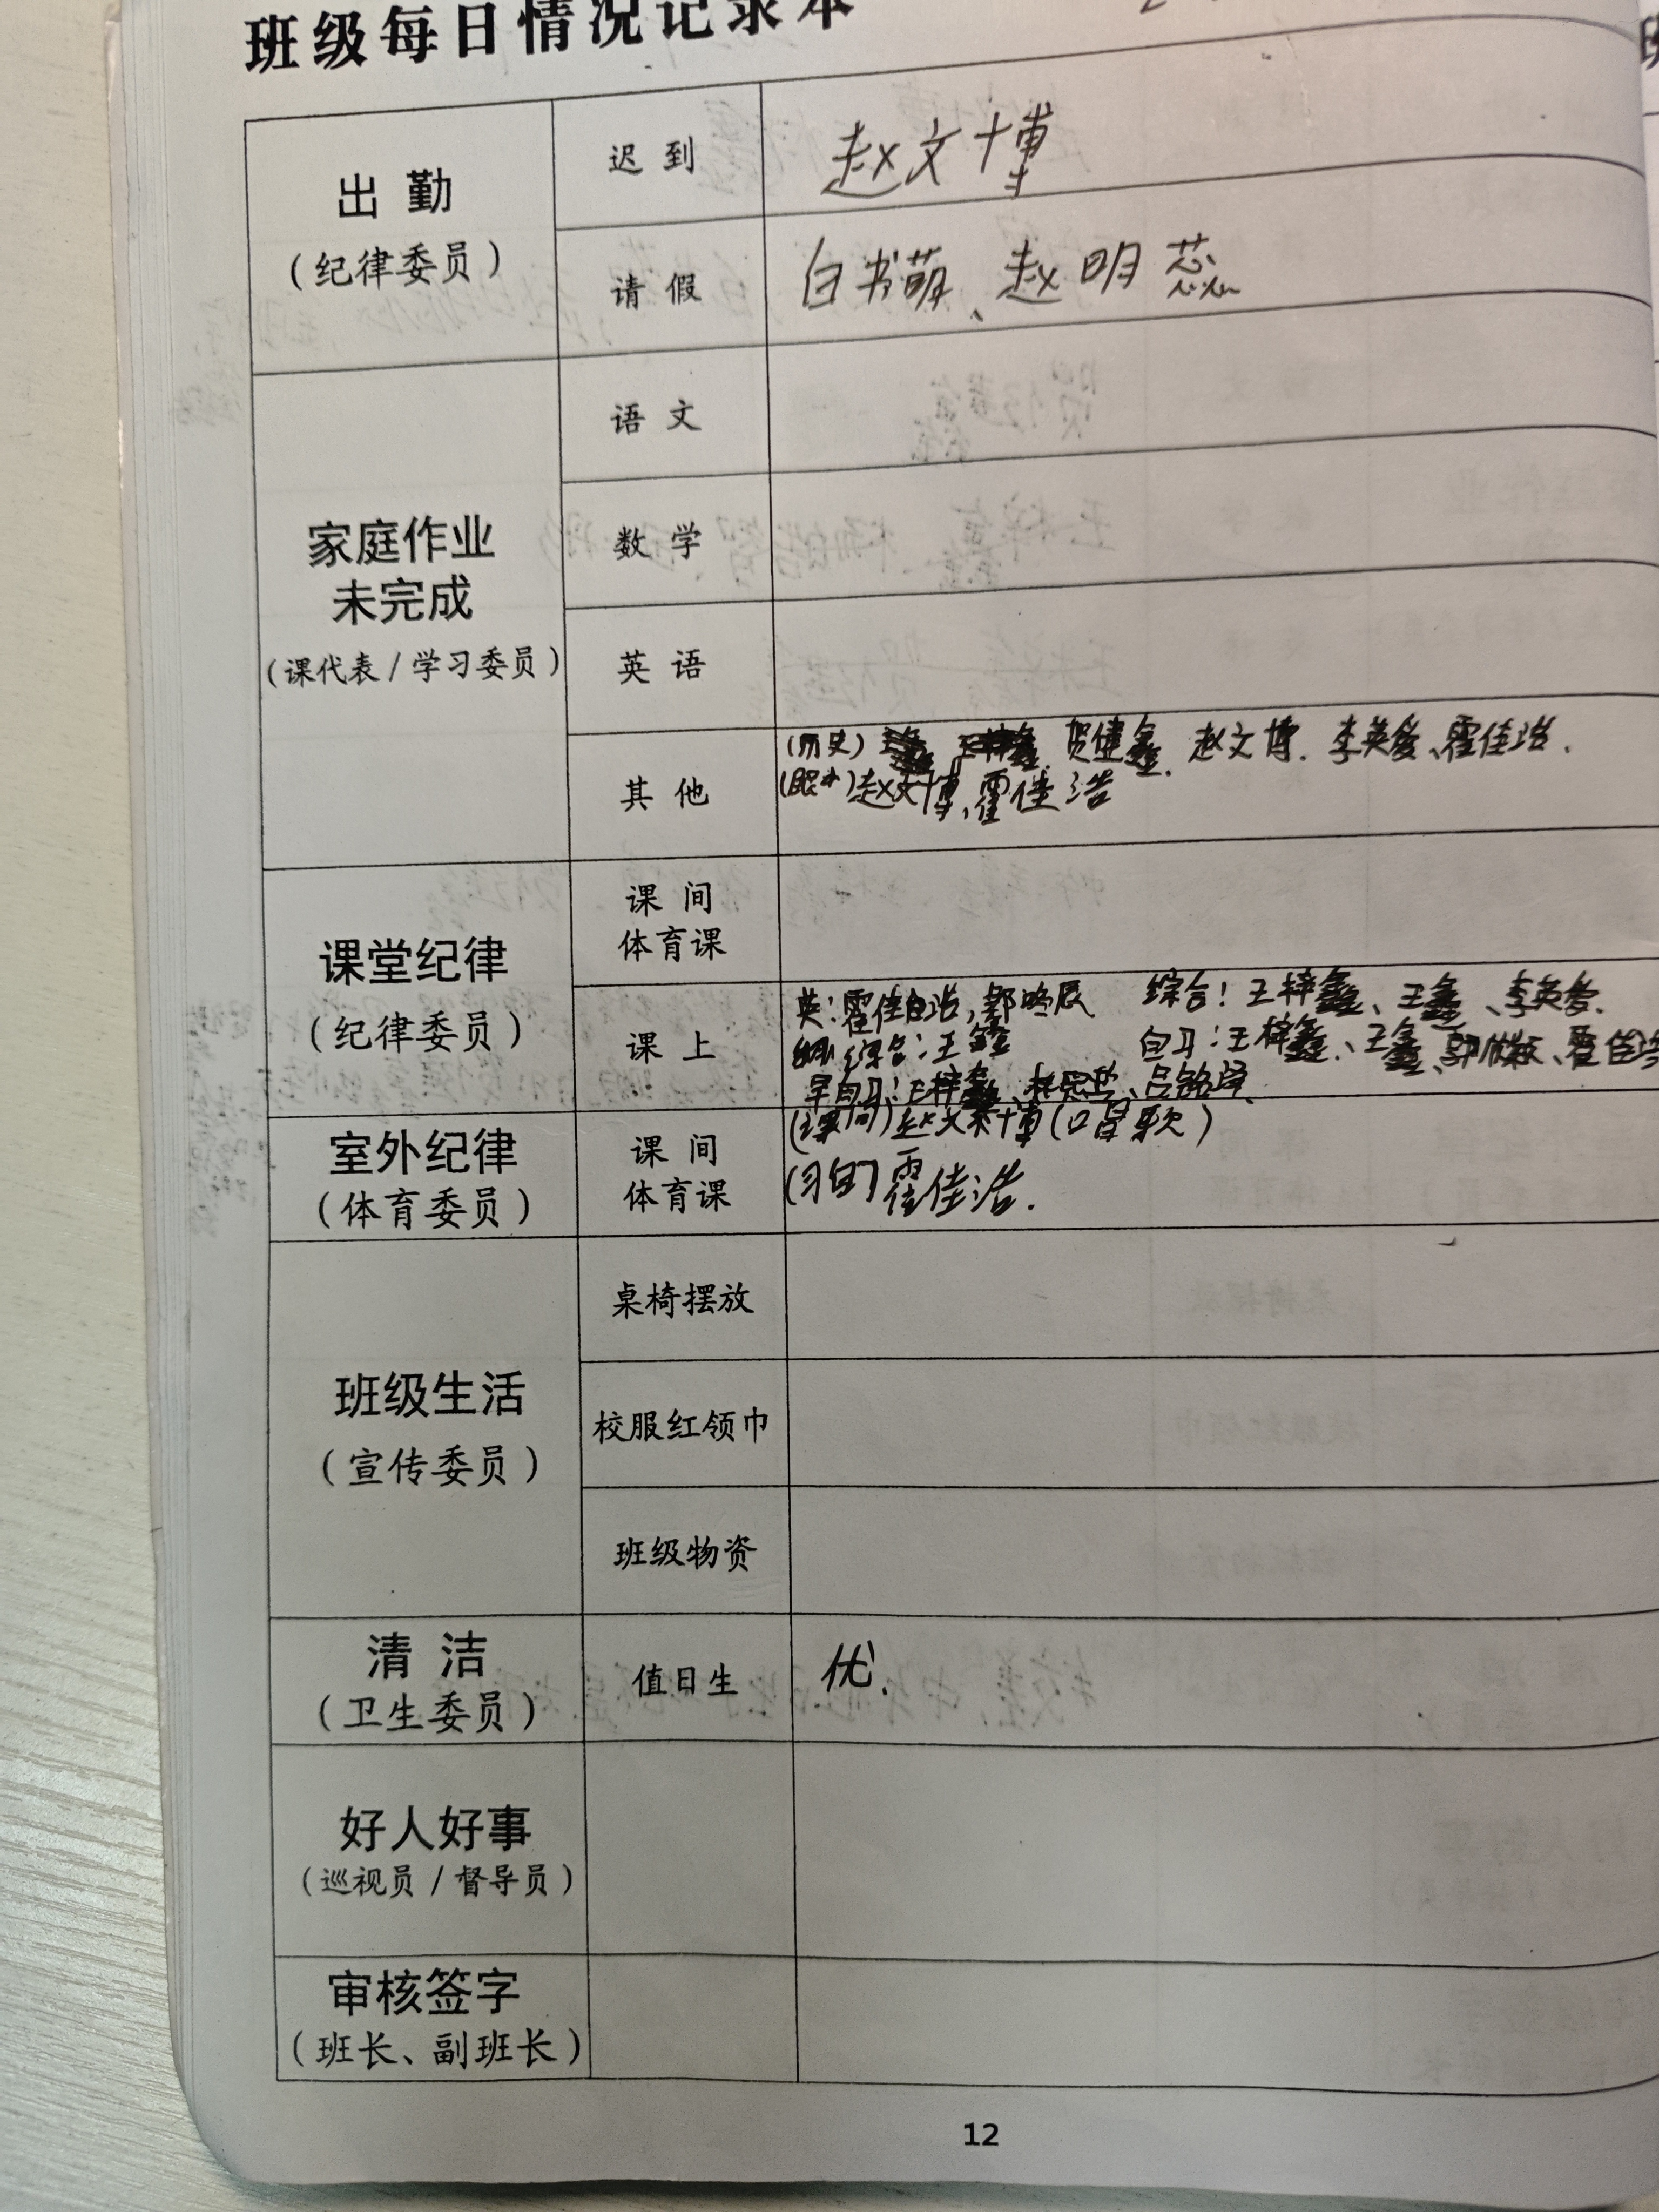 班级每日情况记录本
出勤
(纪律委员)
迟到
赵文博
请假
白书萌、赵明蕊
家庭作业
未完成
(课代表/学习委员)
语文
数学
英语
其他
(历史) 贺健鑫. 赵文博. 李英爱、霍佳浩.
赵文博,霍佳浩
课堂纪律
(纪律委员)
课间
体育课
课上
英:霍佳浩, 综合:王梓鑫、王鑫、李英爱.
综合:王鑫 自习:王梓鑫、王鑫、
早自习:王梓鑫、吕铭泽.
室外纪律
(体育委员)
课间
体育课
(课间)赵文博(口哨歌)
霍佳浩.
班级生活
(宣传委员)
桌椅摆放
校服红领巾
班级物资
清洁
(卫生委员)
值日生
优.
好人好事
(巡视员/督导员)
审核签字
(班长、副班长)
12